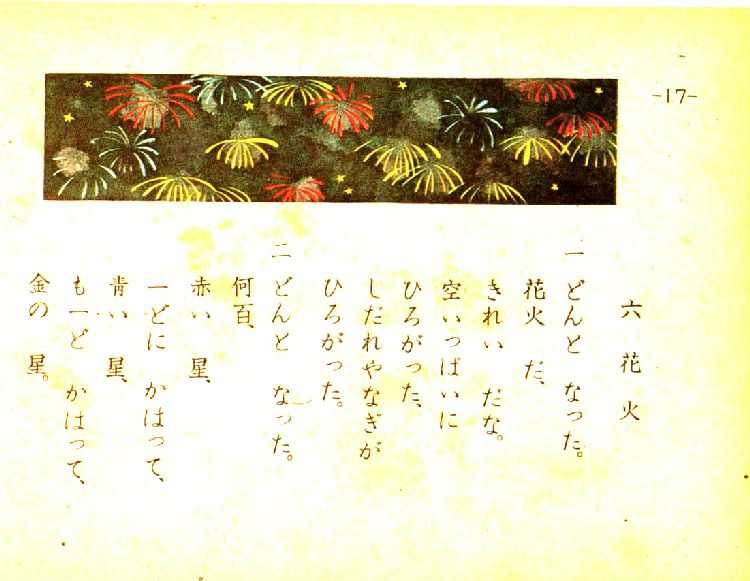 -17-
六 花 火
一 どんと なった。
花火 だ、
きれい だな。
空いっぱいに
ひろがった、
しだれやなぎが
ひろがった。
二 どんと なった。
何百、
赤い 星、
一どに かはって、
青い 星、
も一ど かはって、
金の 星。